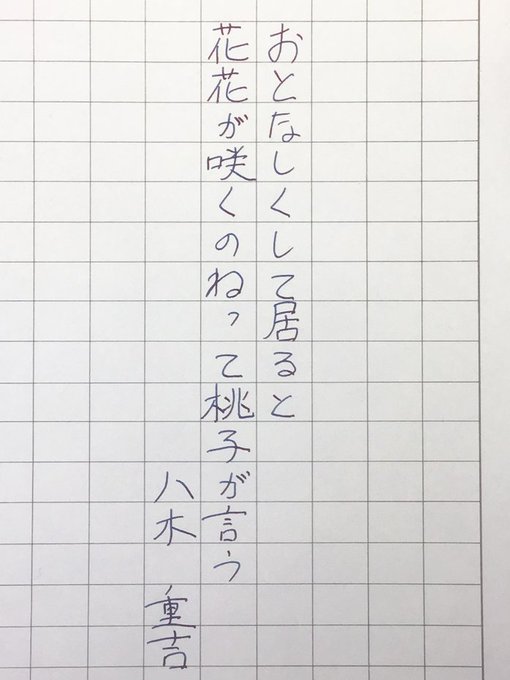 おとなしくして居ると
花花が咲くのねって桃子が言う
八木 重吉